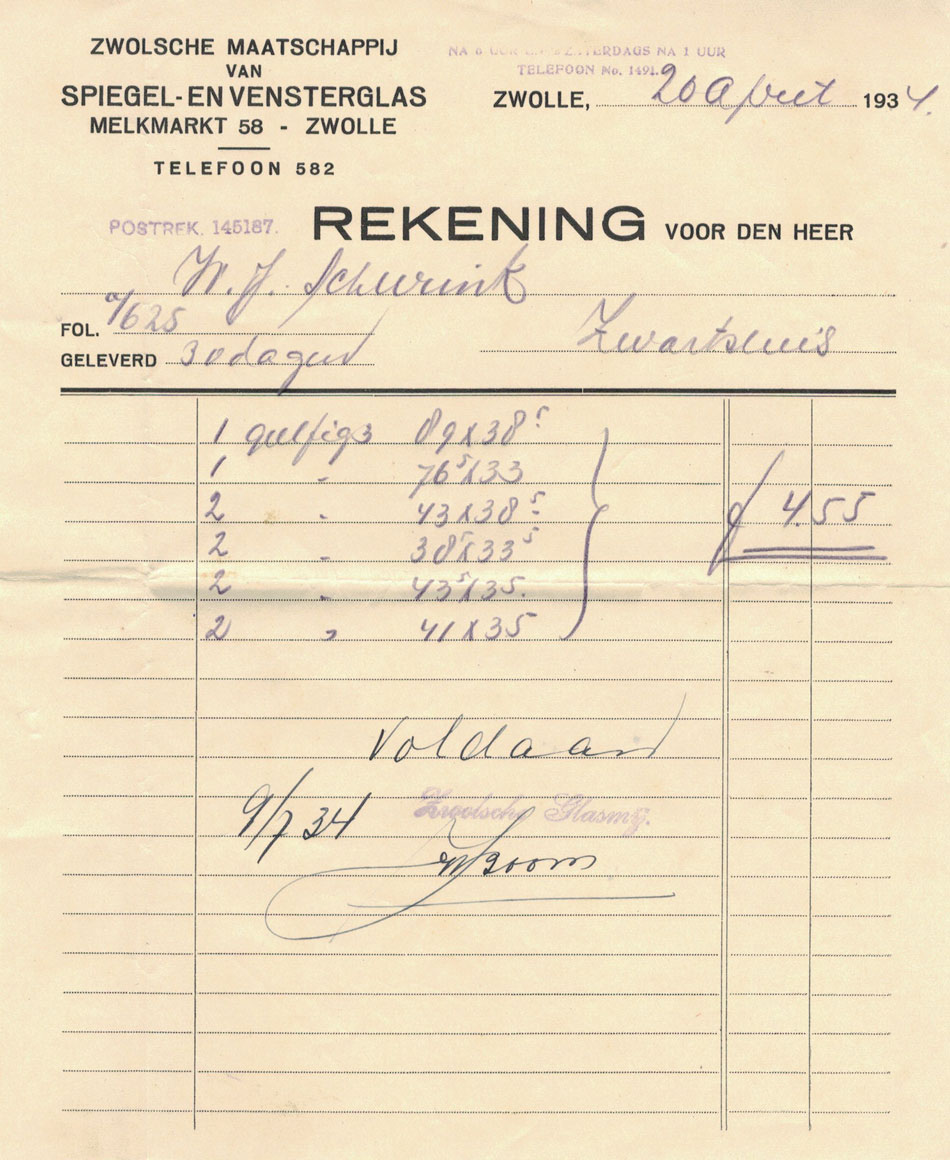 ZWOLSCHE MAATSCHAPPIJ
VAN
SPIEGEL- EN VENSTERGLAS
MELKMARKT 58 - ZWOLLE
TELEFOON 582
NA 6 UUR EN ZATERDAGS NA 1 UUR
TELEFOON No. 1491.
ZWOLLE, 20 April 1934.
POSTREK. 145187.
REKENING VOOR DEN HEER
W. J. Schurink
FOL. 625
Zwartsluis
GELEVERD 30 dagen
1 89 x 38⁵
1 " 76⁵ x 33
2 " 43 x 38⁵
2 " 38⁵ x 33⁵
2 " 43⁵ x 35.
2 " 41 x 35
ƒ 4.55
Voldaan
9/7 34
Zwolsche Glasmij.